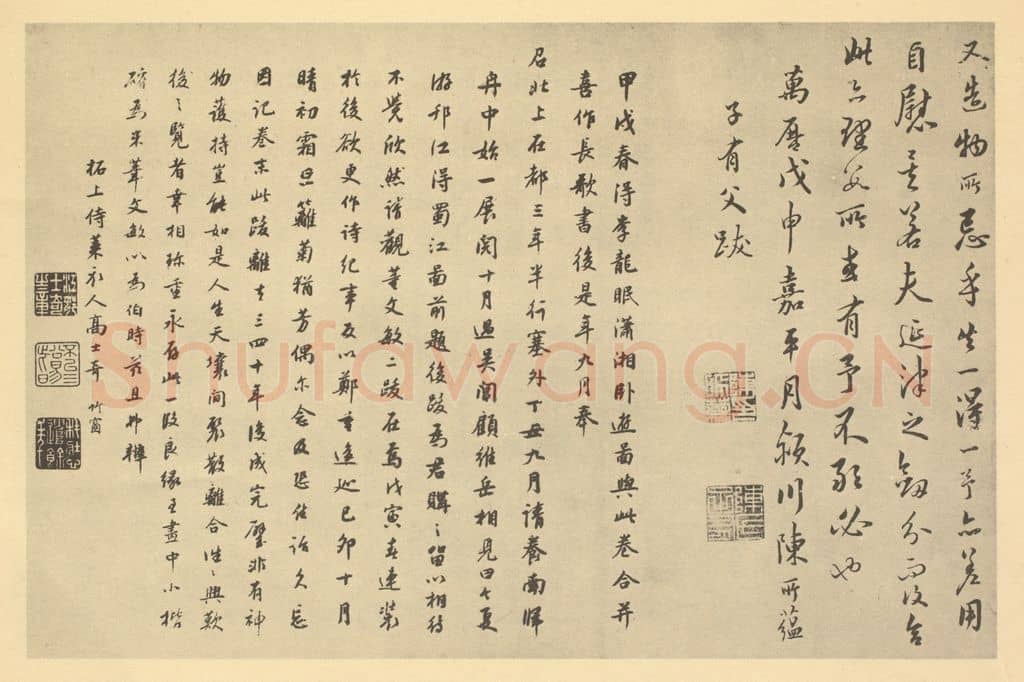 又造物所忌乎失一得一予亦差用
自慰云若夫延津之劍分而復合
此亦理之所或有予不敢必也
萬曆戊申嘉平月潁川陳所蘊
子有父跋
甲戌春得李龍眠瀟湘卧遊啚與此卷合并
喜作長歌書後是年九月奉
召北上在都三年半行塞外丁丑九月請養南歸
舟中始一展閱十月過吳閶顧維岳相見曰今夏
游邗江得蜀江啚前題後跋爲君購之留以相待
不覺欣然諦觀董文敏二跋在焉戊寅春速裝
於後欲更作詩紀事反以鄭重遲迴己卯十月
晴初霜旦籬菊猶芳偶尔念及恐佔話久忘
因記卷末此跋離去三四十年後成完璧非有神
物護持豈能如是人生天壤間聚散離合徃徃興歎
後之覽者幸相珍重永存此段良緣耳畫中小楷
爲文敏以爲伯時且
柘上侍萊衣人高士奇 竹窗
江邨士奇之章
Shufawang.CN